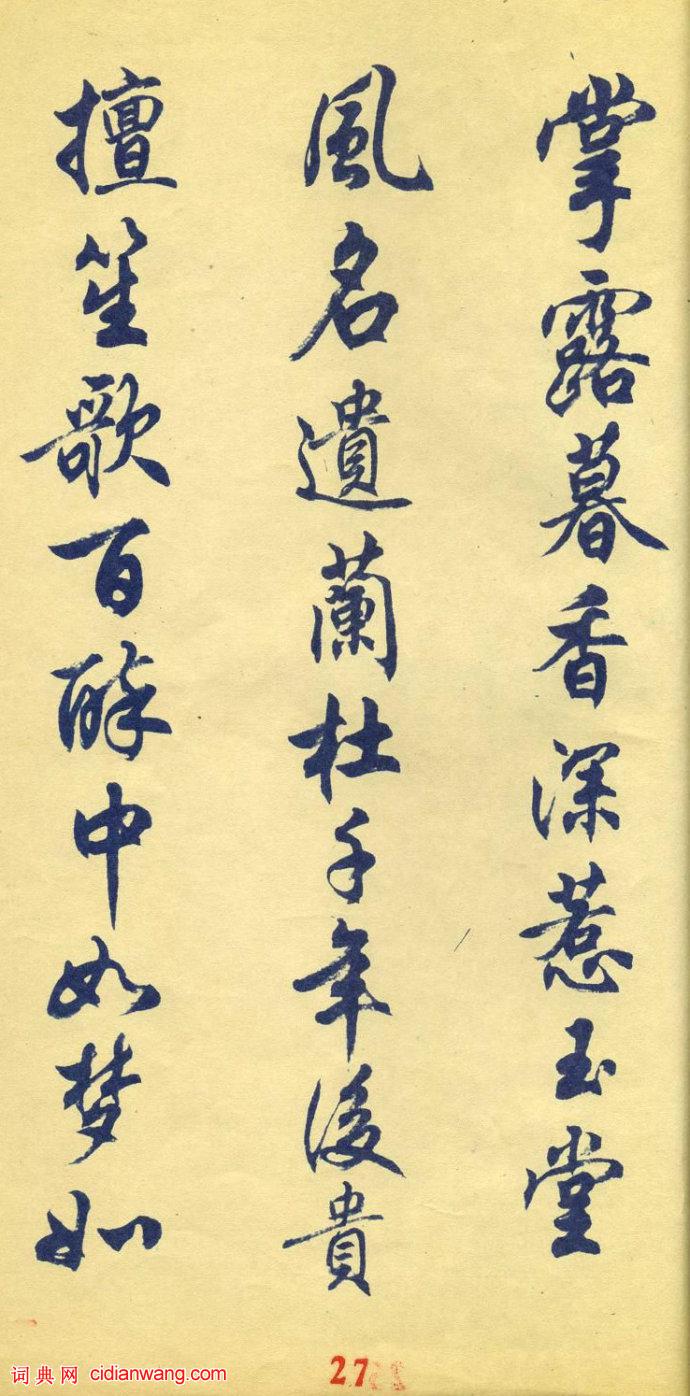 掌露暮香深惹玉堂
風名遺蘭杜千年後貴
擅笙歌百醉中如夢如
27
词典网 cidianwang.com